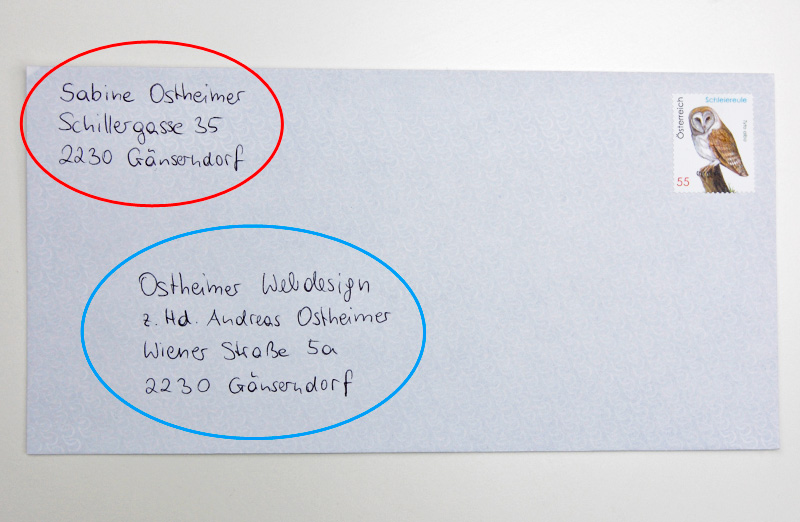 Sabine Ostheimer
Schillergasse 35
2230 Gänserndorf
Schleiereule
Österreich
55
Ostheimer Webdesign
z. Hd. Andreas Ostheimer
Wiener Straße 5a
2230 Gänserndorf